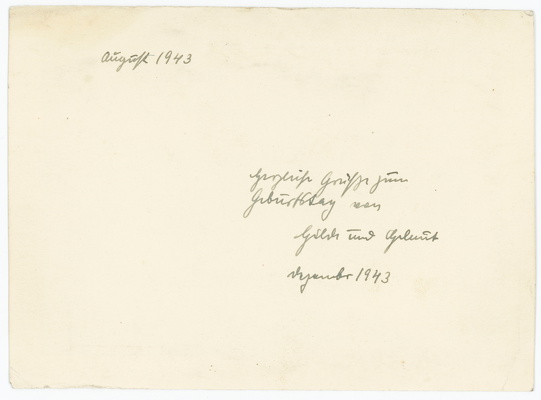 August 1943
Herzliche Grüße zum
Geburtstag von
Hilde und Helmut
Dezember 1943